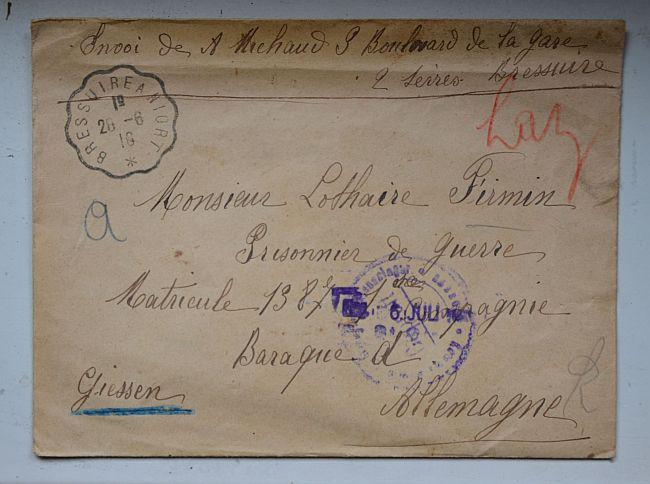 Envoi de A Michaud 9 Boulevard de la gare
2 Sèvres Bressuire
BRESSUIRE A NIORT
1º
26 -6
16
Laz
a
Monsieur Lothaire Firmin
Prisonnier de Guerre
Matricule 13 Compagnie
6. JULI
Baraque d
Giessen
Allemagne
R